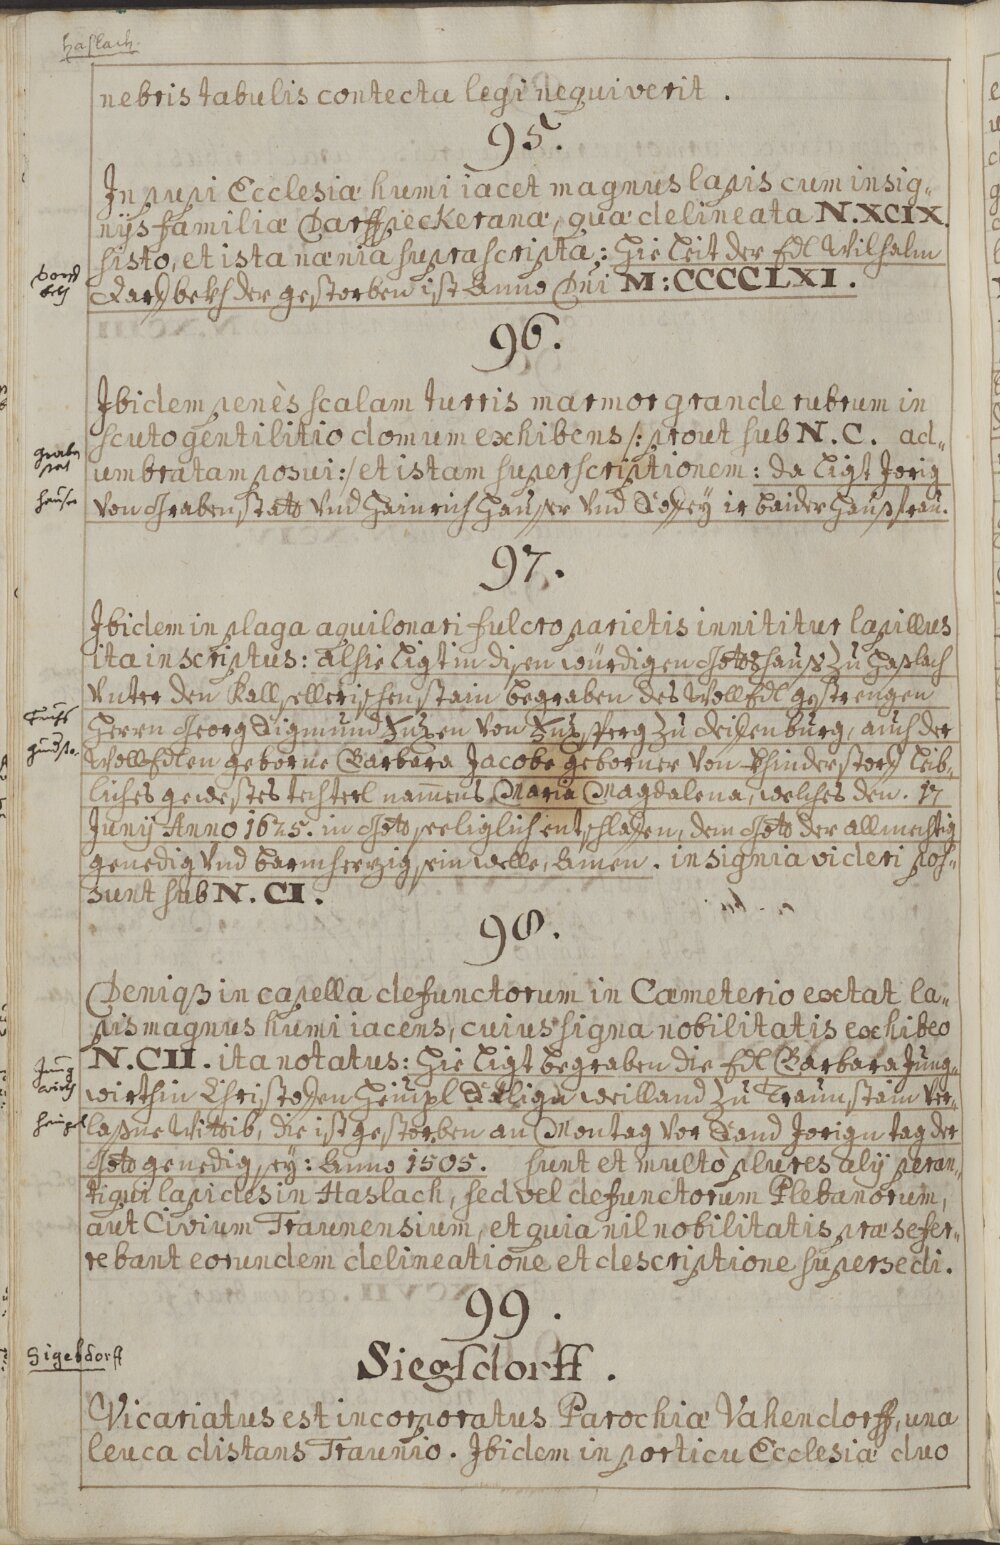 Haslach.
nebris tabulis contecta legi nequiverit .
95.
In pupi Ecclesiæ humi iacet magnus lapis cum insig„
nijs familiæ Darffpeckeranæ, quæ delineata N.XCIX.
sisto, et ista nænia suprascripta: Hie leit der Edl Wilhalm
Darfbekh der gestorben ist Anno Dni M:CCCCLXI.
96.
Ibidem penès scalam turris marmor grande rubrum in
scuto gentilitio domum exhibens /: prout sub N.C. ad„
umbratam posui:/ et istam superscriptionem: da ligt Jorig
von Grabenstato vnd Hainrich Hauser vnd Offey ir baider Haußfrau.
97.
Ibidem in plaga aquilonari fulcro parietis innititur lapillus
ita inscriptus: alhie ligt in disen würdigen Gottshauß zu Haßlach
vnter den Kallpellerischen stain begraben des WollEdl gestrengen
Herrn Georg Sigmund Fuxen von Fuxsperg zu
WollEdlen geborne Barbara Jacobe geborner von leib„
liches gewestes techterl namens Maria Magdalena, welches den . 17
Junij Anno 1625. in Gott seeliglich entschlaffen, dem Gott der allmechtig
genedig vnd barmherzig sein welle, Amen. insignia videri pos„
sunt sub N.CI.
98.
Deniq3 in capella defunctorum in Cæmeterio extat la„
pis magnus humi iacens, cuius signa nobilitatis exhibeo
N.CII. ita notatus: Hie ligt begraben die Edl Barbara Jung„
wirthin Christofen Heimpl Selign weilland zu Traunstain ver„
laßne Wittib, die ist gestorben an Montag vor Sand Jorign tag der
Gott genedig sey: Anno 1505. sunt et multò plures alij peran„
tiqui lapides in Haslach, sed vel defunctorum Plebanorum,
aut Civium Traunensium, et quia nil nobilitatis præsefer„
rebant eorundem delineatione et descriptione supersedi.
99.
Sigebdorff
Sieglsdorff.
Vicariatus est incorporatus Parochiæ Vahendorff, una
leuca distans Traunio. Ibidem in porticu Ecclesiæ duo